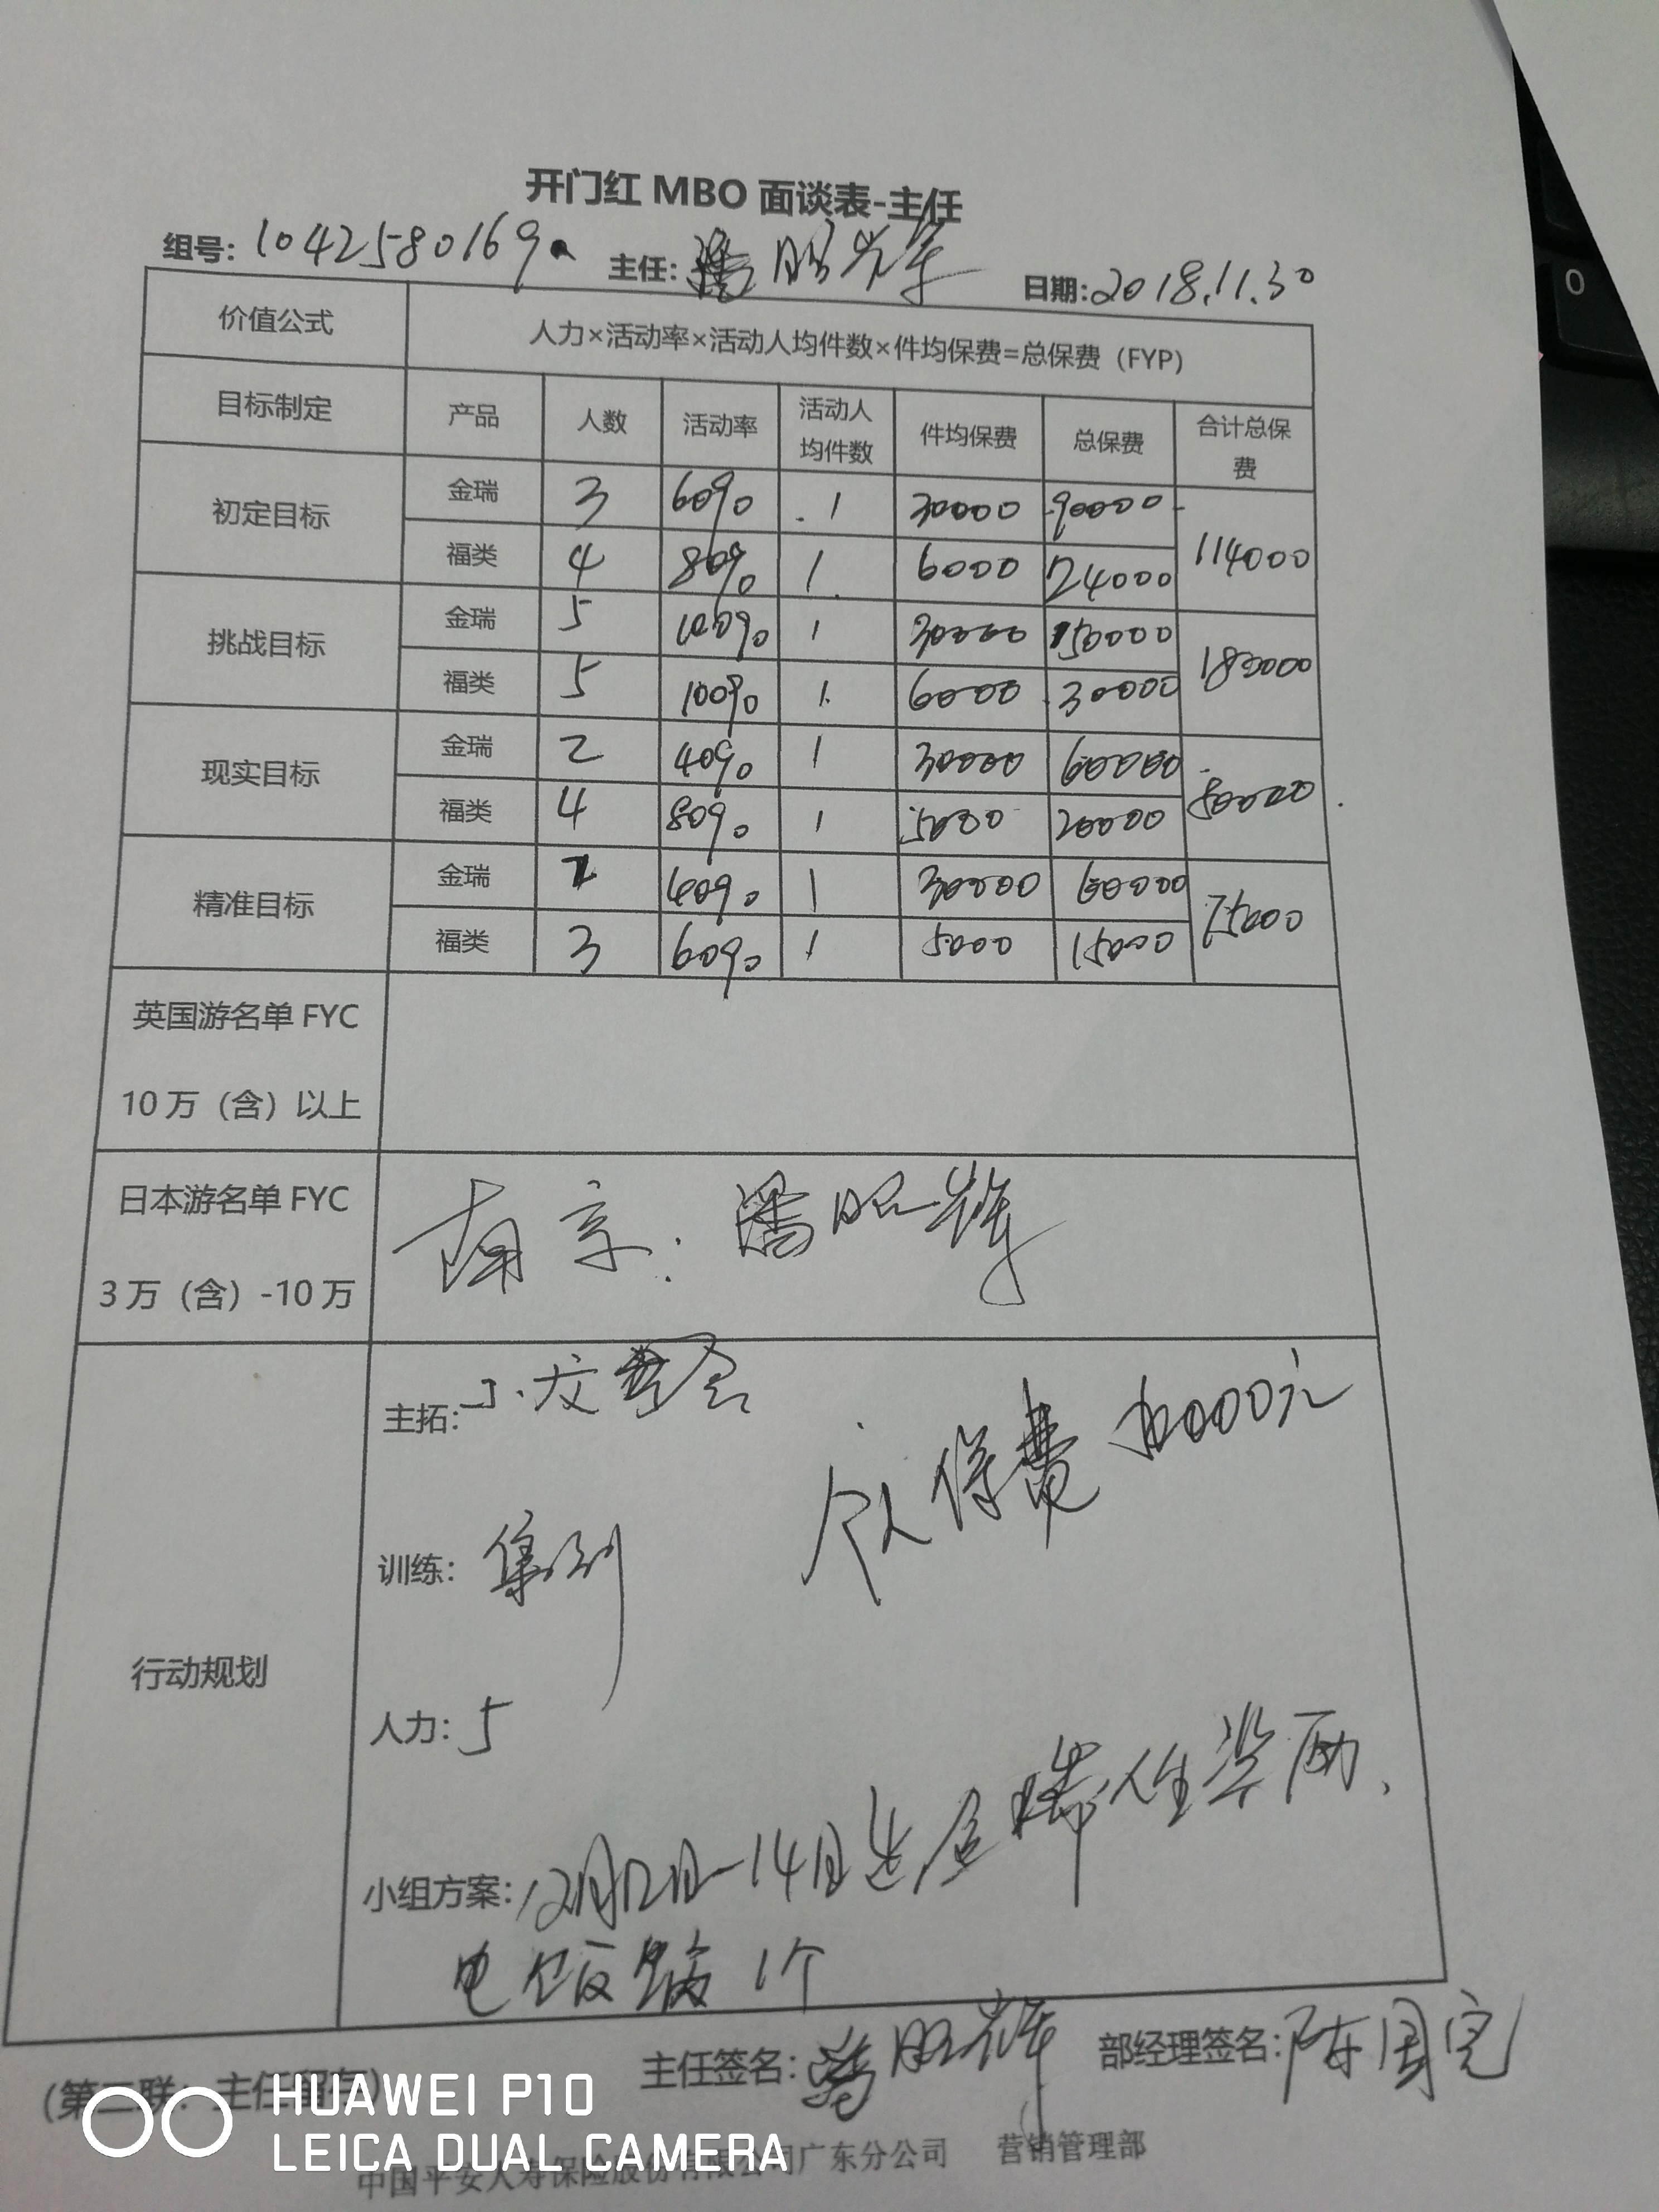 开门红 MBO 面谈表-主任
组号: 1042580169 主任: 潘昭辉 日期: 2018.11.30
价值公式 人力×活动率×活动人均件数×件均保费=总保费（FYP）
目标制定 产品 人数 活动率 活动人均件数 件均保费 总保费 合计总保费
初定目标 金瑞 3 60% 1 30000 90000 114000
福类 4 80% 1 6000 24000
挑战目标 金瑞 5 100% 1 30000 150000 180000
福类 5 100% 1 6000 30000
现实目标 金瑞 2 40% 1 30000 60000 80000
福类 4 80% 1 5000 20000
精准目标 金瑞 2 40% 1 30000 60000 75000
福类 3 60% 1 5000 15000
英国游名单 FYC
10万（含）以上
日本游名单 FYC
3万（含）-10万
南京: 潘昭辉
行动规划
主拓:
个人保费 000元
训练: 集训
人力: 5
小组方案: 12月12日-14日 金瑞人生奖励、
电饭锅 1个
主任签名: 潘昭辉 部经理签名: 陈国
(第二联: 主任留存)
HUAWEI P10
LEICA DUAL CAMERA
中国平安人寿保险股份有限公司广东分公司 营销管理部
0